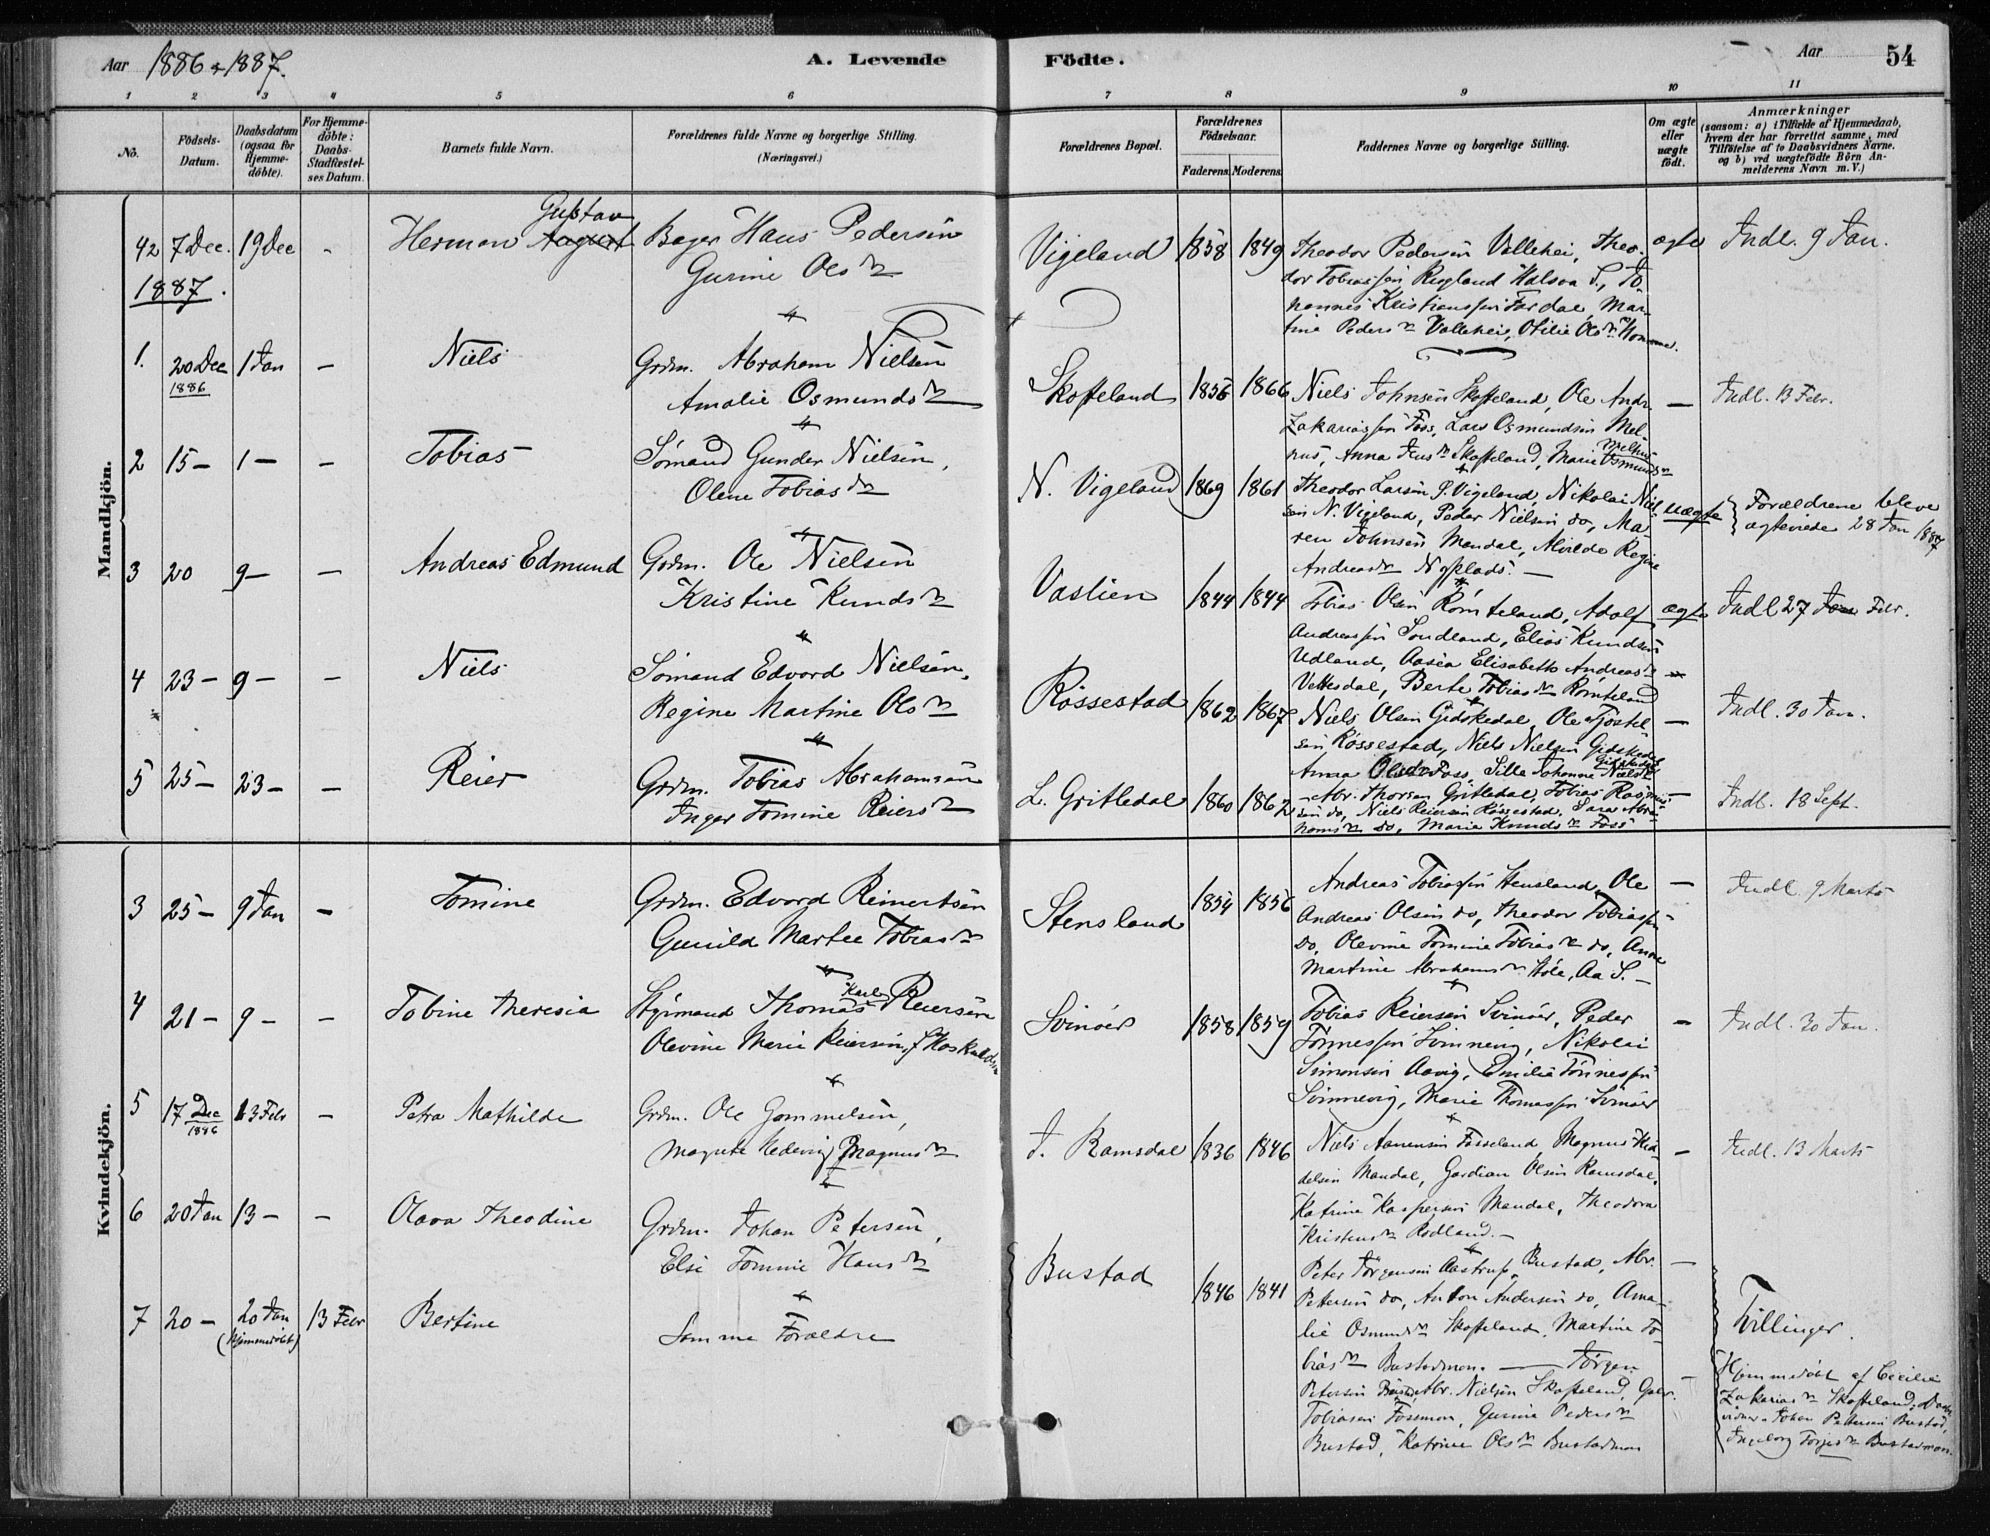 Aar 1886 & 1887. A. Levende Födte. Aar 54
1 2 3 4 5 6 7 8 9 10 11
No.
Födsels-
Datum.
Daabsdatum
(ogsaa for
Hjemme-
döbte).
For Hjemme-
döbte:
Daabs-
Stadfæstel-
ses Datum.
Barnets fulde Navn.
Forældrenes fulde Navne og borgerlige Stilling.
(Næringsvei.)
Forældrenes Bopæl.
Forældrenes
Födselsaar.
Faderens. Moderens.
Faddernes Navne og borgerlige Stilling.
Om ægte
eller
uægte
födt.
Anmærkninger
(saasom: a) i Tilfælde af Hjemmedaab,
hvem der har forrettet samme, med
Tilföielse af to Daabsvidners Navne.
og b) ved uægtefödte Börn An-
melderens Navn m. V.)
Mandkjön.
42 7 Dec. 19 Dec - Herman August Gustav Bager Hans Pedersen
Gurine Olsdn
Vigeland 1858 1849
Theodor Pedersen Valleheï, Theo-
dor Tobiassen Rugland Halsaa S., Jo-
hannes Kristiansen Fardal, Mar-
tine Pedersdn Valleheï, Otilie Olsdn Homme.
ægte Indl. 9 Jan.
1887.
1. 20 Dec 1886 1 Jan - Niels Grdm. Abraham Nielsen
Amalie Osmundsdn
Skofteland 1856 1866
Niels Johnsen Skofteland, Ole Andr.
Zakariassen Foss, Lars Osmundsen Mel-
hus, Anna Jensdn Skofteland, Marie Osmundsdn Melhus
- Indl. 13 Febr.
2 15 - 1 - - Tobias Sömand Gunder Nielsen,
Olene Tobiasdn
N. Vigeland 1869 1861
Theodor Larsen S. Vigeland, Nikolai Niel-
sen N. Vigeland, Peder Nielsen do, Ma-
ren Johnsen Mandal, Alvilde Regine
Andreasdn Nyplads. -
uægte Forældrene bleve
ægteviede 28 Jan 1887
3 20 9 - - Andreas Edmund Grdm. Ole Nielsen
Kristine Knudsdn
Vaslien 1844 1844
Tobias Olsen Römteland, Adolf
Andreassen Sondland, Elias Knudsen
Udland, Aasea Elisabeth Andreasdn
Vettesdal, Berte Tobiasdn Römteland
ægte Indl 27 Jan Febr.
4 23 - 9 - - Niels Sömand Edvard Nielsen,
Regine Martine Olsdn
Rössestad 1862 1867
Niels Olsen Gidskedal, Ole Tjöstel-
sen Rössestad, Niels Nielsen Gidskedal
Anna Olsdn Foss, Sille Johanne Nielsdn Gidskedal
- Indl. 30 Jan.
5 25 - 23 - - Reier Grdm. Tobias Abrahamsen
Inger Tomine Reiersdn
L. Gritledal 1860 1862
Abr. Thorsen Gritledal, Tobias Rasmus-
sen do, Niels Reiersen Rössestad, Sara Abra-
hamsdn do, Marie Knudsdn Foss
- Indl. 18 Sept.
Kvindekjön.
3 25 - 9 Jan - Tomine Grdm. Edvard Reinertsen
Gunild Martee Tobiasdn
Stensland 1854 1856
Andreas Tobiassen Stensland, Ole
Andreas Olsen do, Theodor Tobiassen
do, Olevine Tomine Tobiasdn do, Anne
Martine Abrahamsdn Höle, Aa S. -
- Indl. 9 Marts
4 21 - 9 - - Tobine Theresia Styrmand Thomas Karl Reiersen
Olevine Marie Reiersen, f. Haskuldsen
Svinöer 1858 1859
Tobias Reiersen Svinöer, Peder
Tönnessen Svinnevig, Nikolai
Simonsen Aavig, Emilie Tönnessen
Svinnevig, Marie Thomassen Svinöer
- Indl. 30 Jan.
5 17 Dec 1886 13 Febr - Petra Mathilde Grdm. Ole Gommelsen,
Magrete Hedevig Magnusdn
I. Ramsdal 1836 1846
Niels Aanensen Fasseland, Magnus Hid-
delsen Mandal, Gardian Olsen Ramsdal,
Katrine Kaspersen Mandal, Theodora
Kristensdn Rödland. -
- Indl. 13 Marts
6 20 Jan 13 - - Olava Theodine Grdm. Johan Petersen,
Elsi Tomine Hansdn
Bustad 1846 1841
Peter Jörgensen Aastrup, Bustad, Abr.
Pettersen do, Anton Andersen do, Ama-
lie Osmundsdn Skofteland, Martine To-
biasdn Bustadmon. - Jörgen
-
7 20 - 20 Jan (Hjemmedöbt) 13 Febr Bertine Samme Forældre
Petersen Bustad, Abr. Nielsen Skofteland, Gabr.
Tobiasen Fossmon, Gurine Pedersdn
Bustad, Katrine Olsdn Bustadmon
-
Tvillinger.
Hjemmedöbt af Cecilie
Zakariasdn Skofteland, Daabs-
vidner Johan Pettersen Bustad,
Ingeborg Torjesdn Bustadmon.